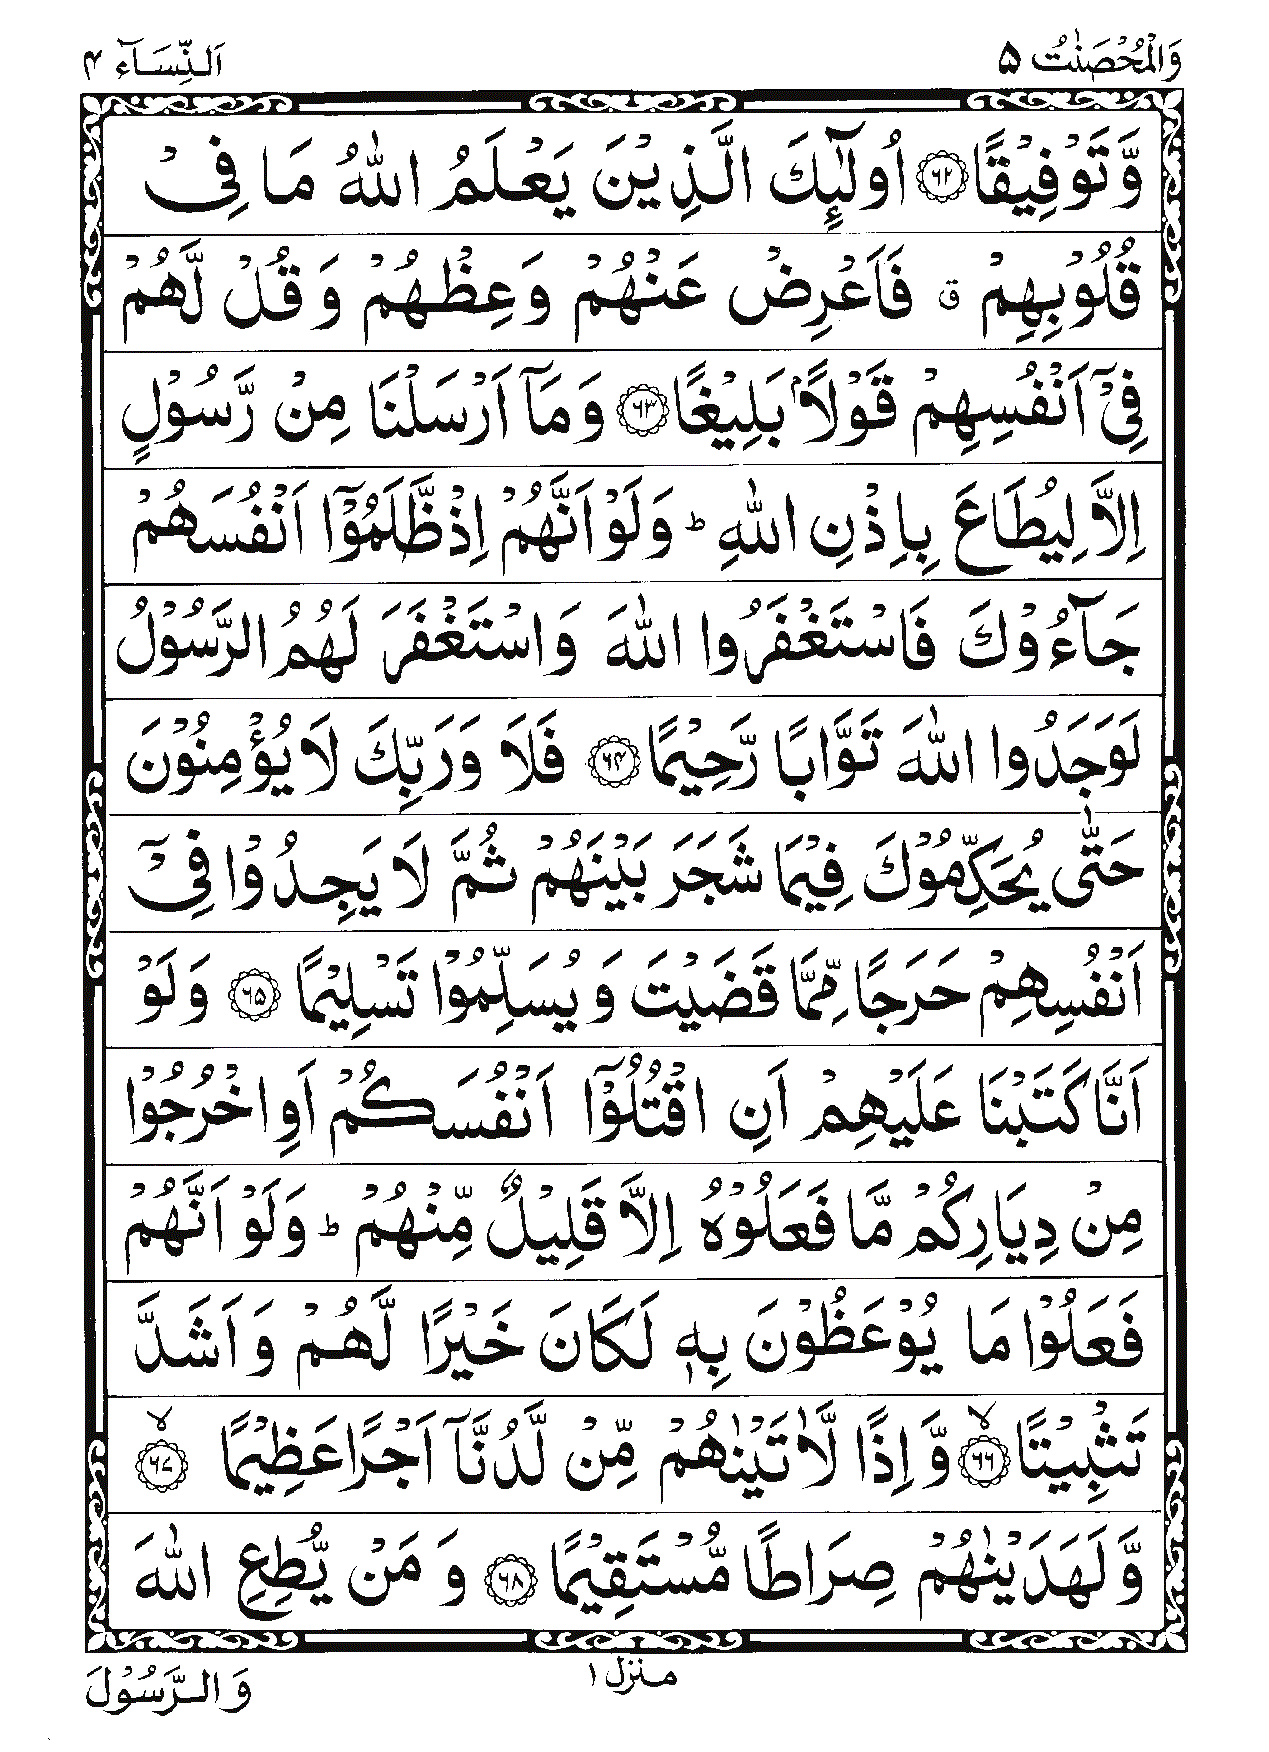 وَالْمُحْصَنٰتُ ۵
اَلنِّسَآء ۴
وَّتَوْفِيْقًا ﴿۶۲﴾ اُولٰٓئِكَ الَّذِيْنَ يَعْلَمُ اللّٰهُ مَا فِىْ
قُلُوْبِهِمْ ۗ فَاَعْرِضْ عَنْهُمْ وَعِظْهُمْ وَ قُلْ لَّهُمْ
فِىْٓ اَنْفُسِهِمْ قَوْلًاۢ بَلِيْغًا ﴿۶۳﴾ وَمَآ اَرْسَلْنَا مِنْ رَّسُوْلٍ
اِلَّا لِيُطَاعَ بِاِذْنِ اللّٰهِ ؕ وَلَوْ اَنَّهُمْ اِذْظَّلَمُوْٓا اَنْفُسَهُمْ
جَآءُوْكَ فَاسْتَغْفَرُوا اللّٰهَ وَاسْتَغْفَرَ لَهُمُ الرَّسُوْلُ
لَوَجَدُوا اللّٰهَ تَوَّابًا رَّحِيْمًا ﴿۶۴﴾ فَلَا وَرَبِّكَ لَا يُؤْمِنُوْنَ
حَتّٰى يُحَكِّمُوْكَ فِيْمَا شَجَرَ بَيْنَهُمْ ثُمَّ لَا يَجِدُوْا فِىْٓ
اَنْفُسِهِمْ حَرَجًا مِّمَّا قَضَيْتَ وَ يُسَلِّمُوْا تَسْلِيْمًا ﴿۶۵﴾ وَلَوْ
اَنَّا كَتَبْنَا عَلَيْهِمْ اَنِ اقْتُلُوْٓا اَنْفُسَكُمْ اَوِ اخْرُجُوْا
مِنْ دِيَارِكُمْ مَّا فَعَلُوْهُ اِلَّا قَلِيْلٌ مِّنْهُمْ ؕ وَلَوْ اَنَّهُمْ
فَعَلُوْا مَا يُوْعَظُوْنَ بِهٖ لَكَانَ خَيْرًا لَّهُمْ وَ اَشَدَّ
تَثْبِيْتًا ۙ﴿۶۶﴾ وَّ اِذًا لَّاٰتَيْنٰهُمْ مِّنْ لَّدُنَّآ اَجْرًا عَظِيْمًا ۙ﴿۶۷﴾
وَّ لَهَدَيْنٰهُمْ صِرَاطًا مُّسْتَقِيْمًا ﴿۶۸﴾ وَ مَنْ يُّطِعِ اللّٰهَ
منزل ۱
وَ الرَّسُوْلَ